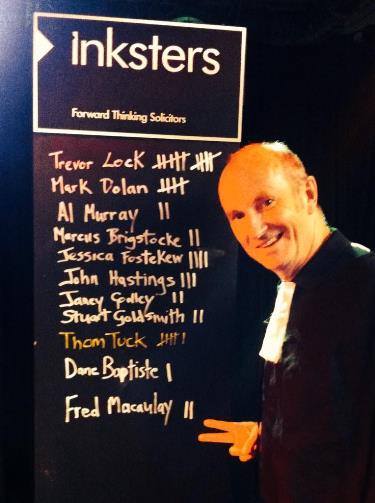 inksters
Forward Thinking Solicitors
Trevor Lock 卌 卌
Mark Dolan 卌
Al Murray ||
Marcus Brigstocke ||
Jessica Fostekew ||||
John Hastings |||
Janey Godley ||
Stuart Goldsmith ||
Thom Tuck 卌 |
Dane Baptiste |
Fred Macaulay ||